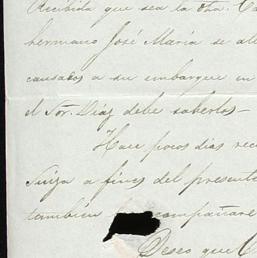 Recibida que sea la
hermano José María se
causados a su embarque en
el Sor. Díaz debe saberlos -
Hace pocos dias
Suiza a fines del
tambien
Deseo que